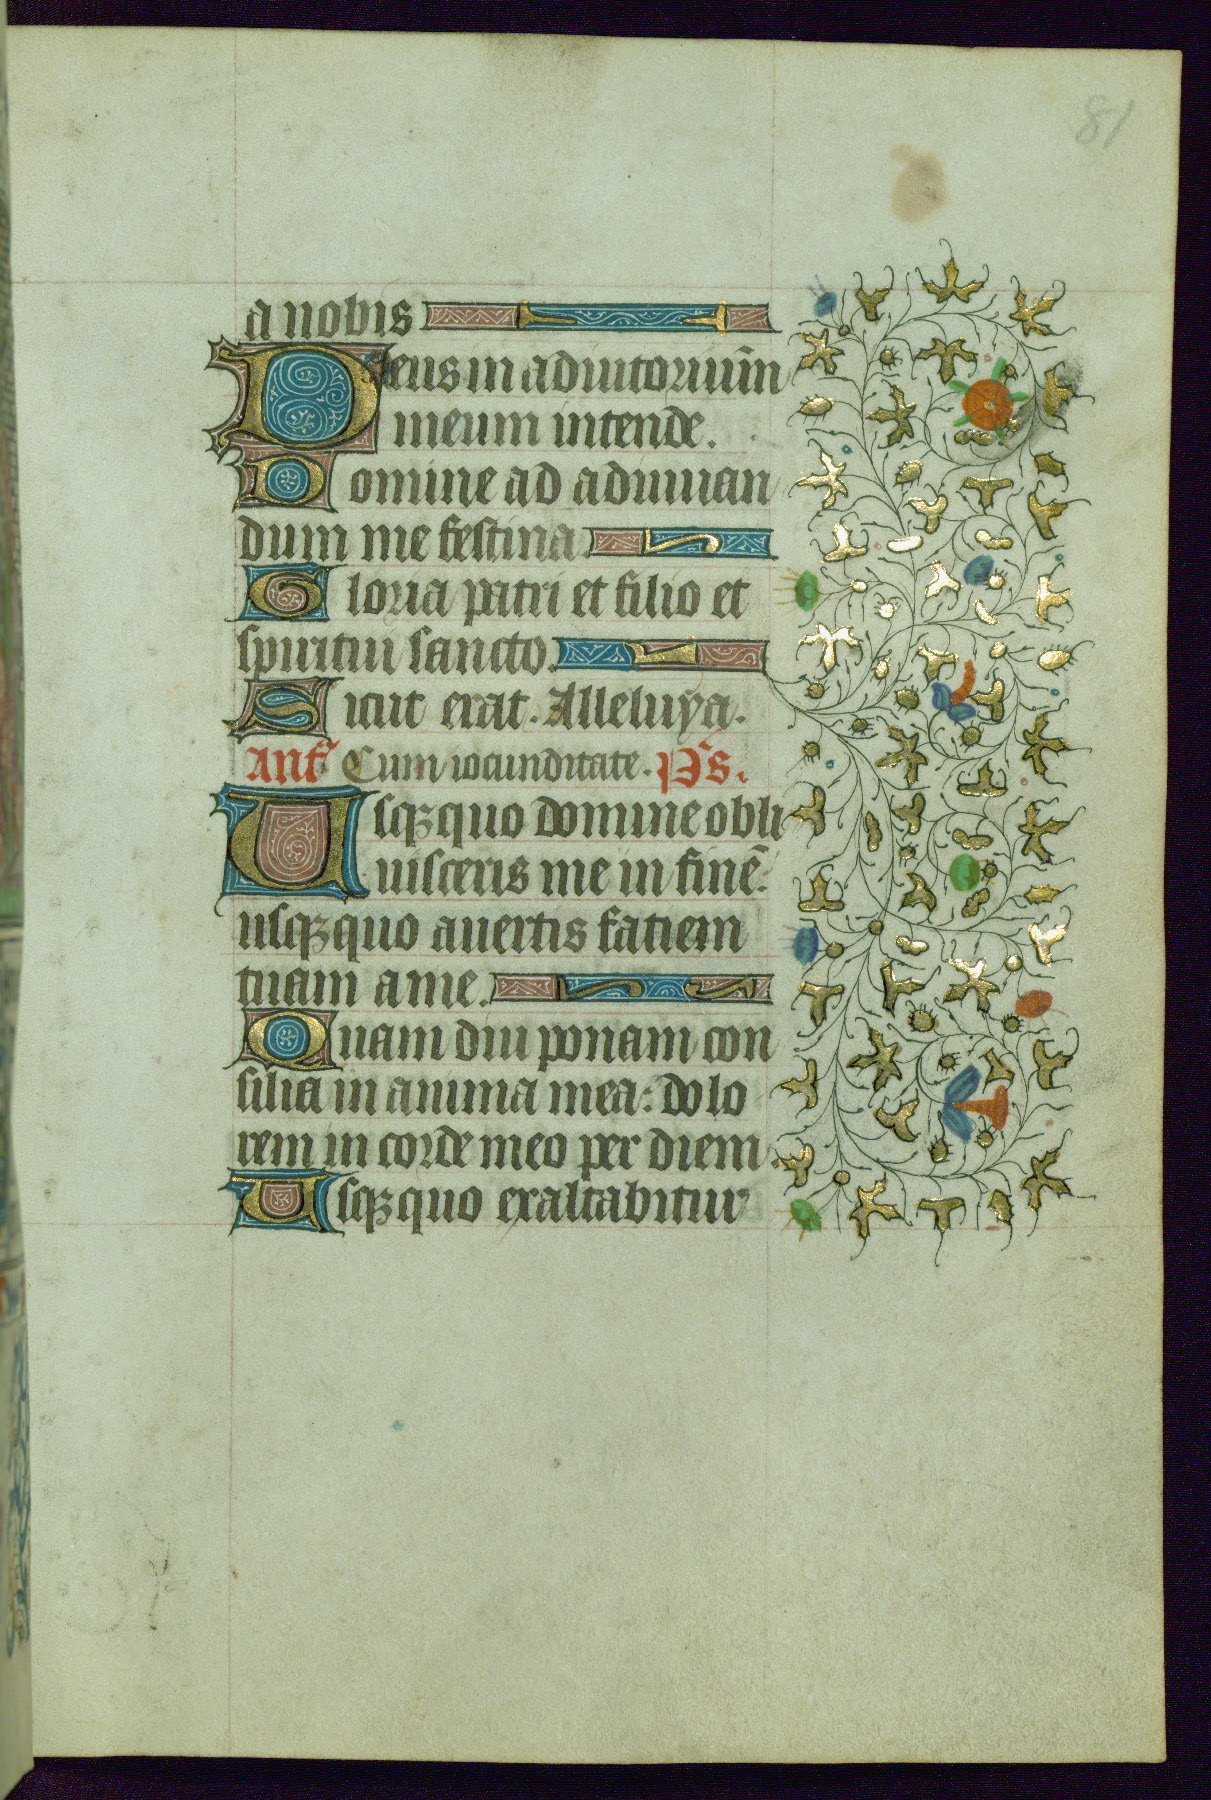 81
a nobis
Deus in adiutoriūm
meum intende.
Domine ad adiuuan
dum me festina.
Gloria patri et filio et
spiritui sancto.
Sicut erat. Alleluya.
Ant̄ Cum iocunditate. Ps̄.
Usqꝫquo domine obli
uisceris me in finē:
usqꝫquo auertis fatiem
tuam a me.
Quam diu ponam con
silia in anima mea: dolo
rem in corde meo per diem.
Usqꝫquo exaltabitur